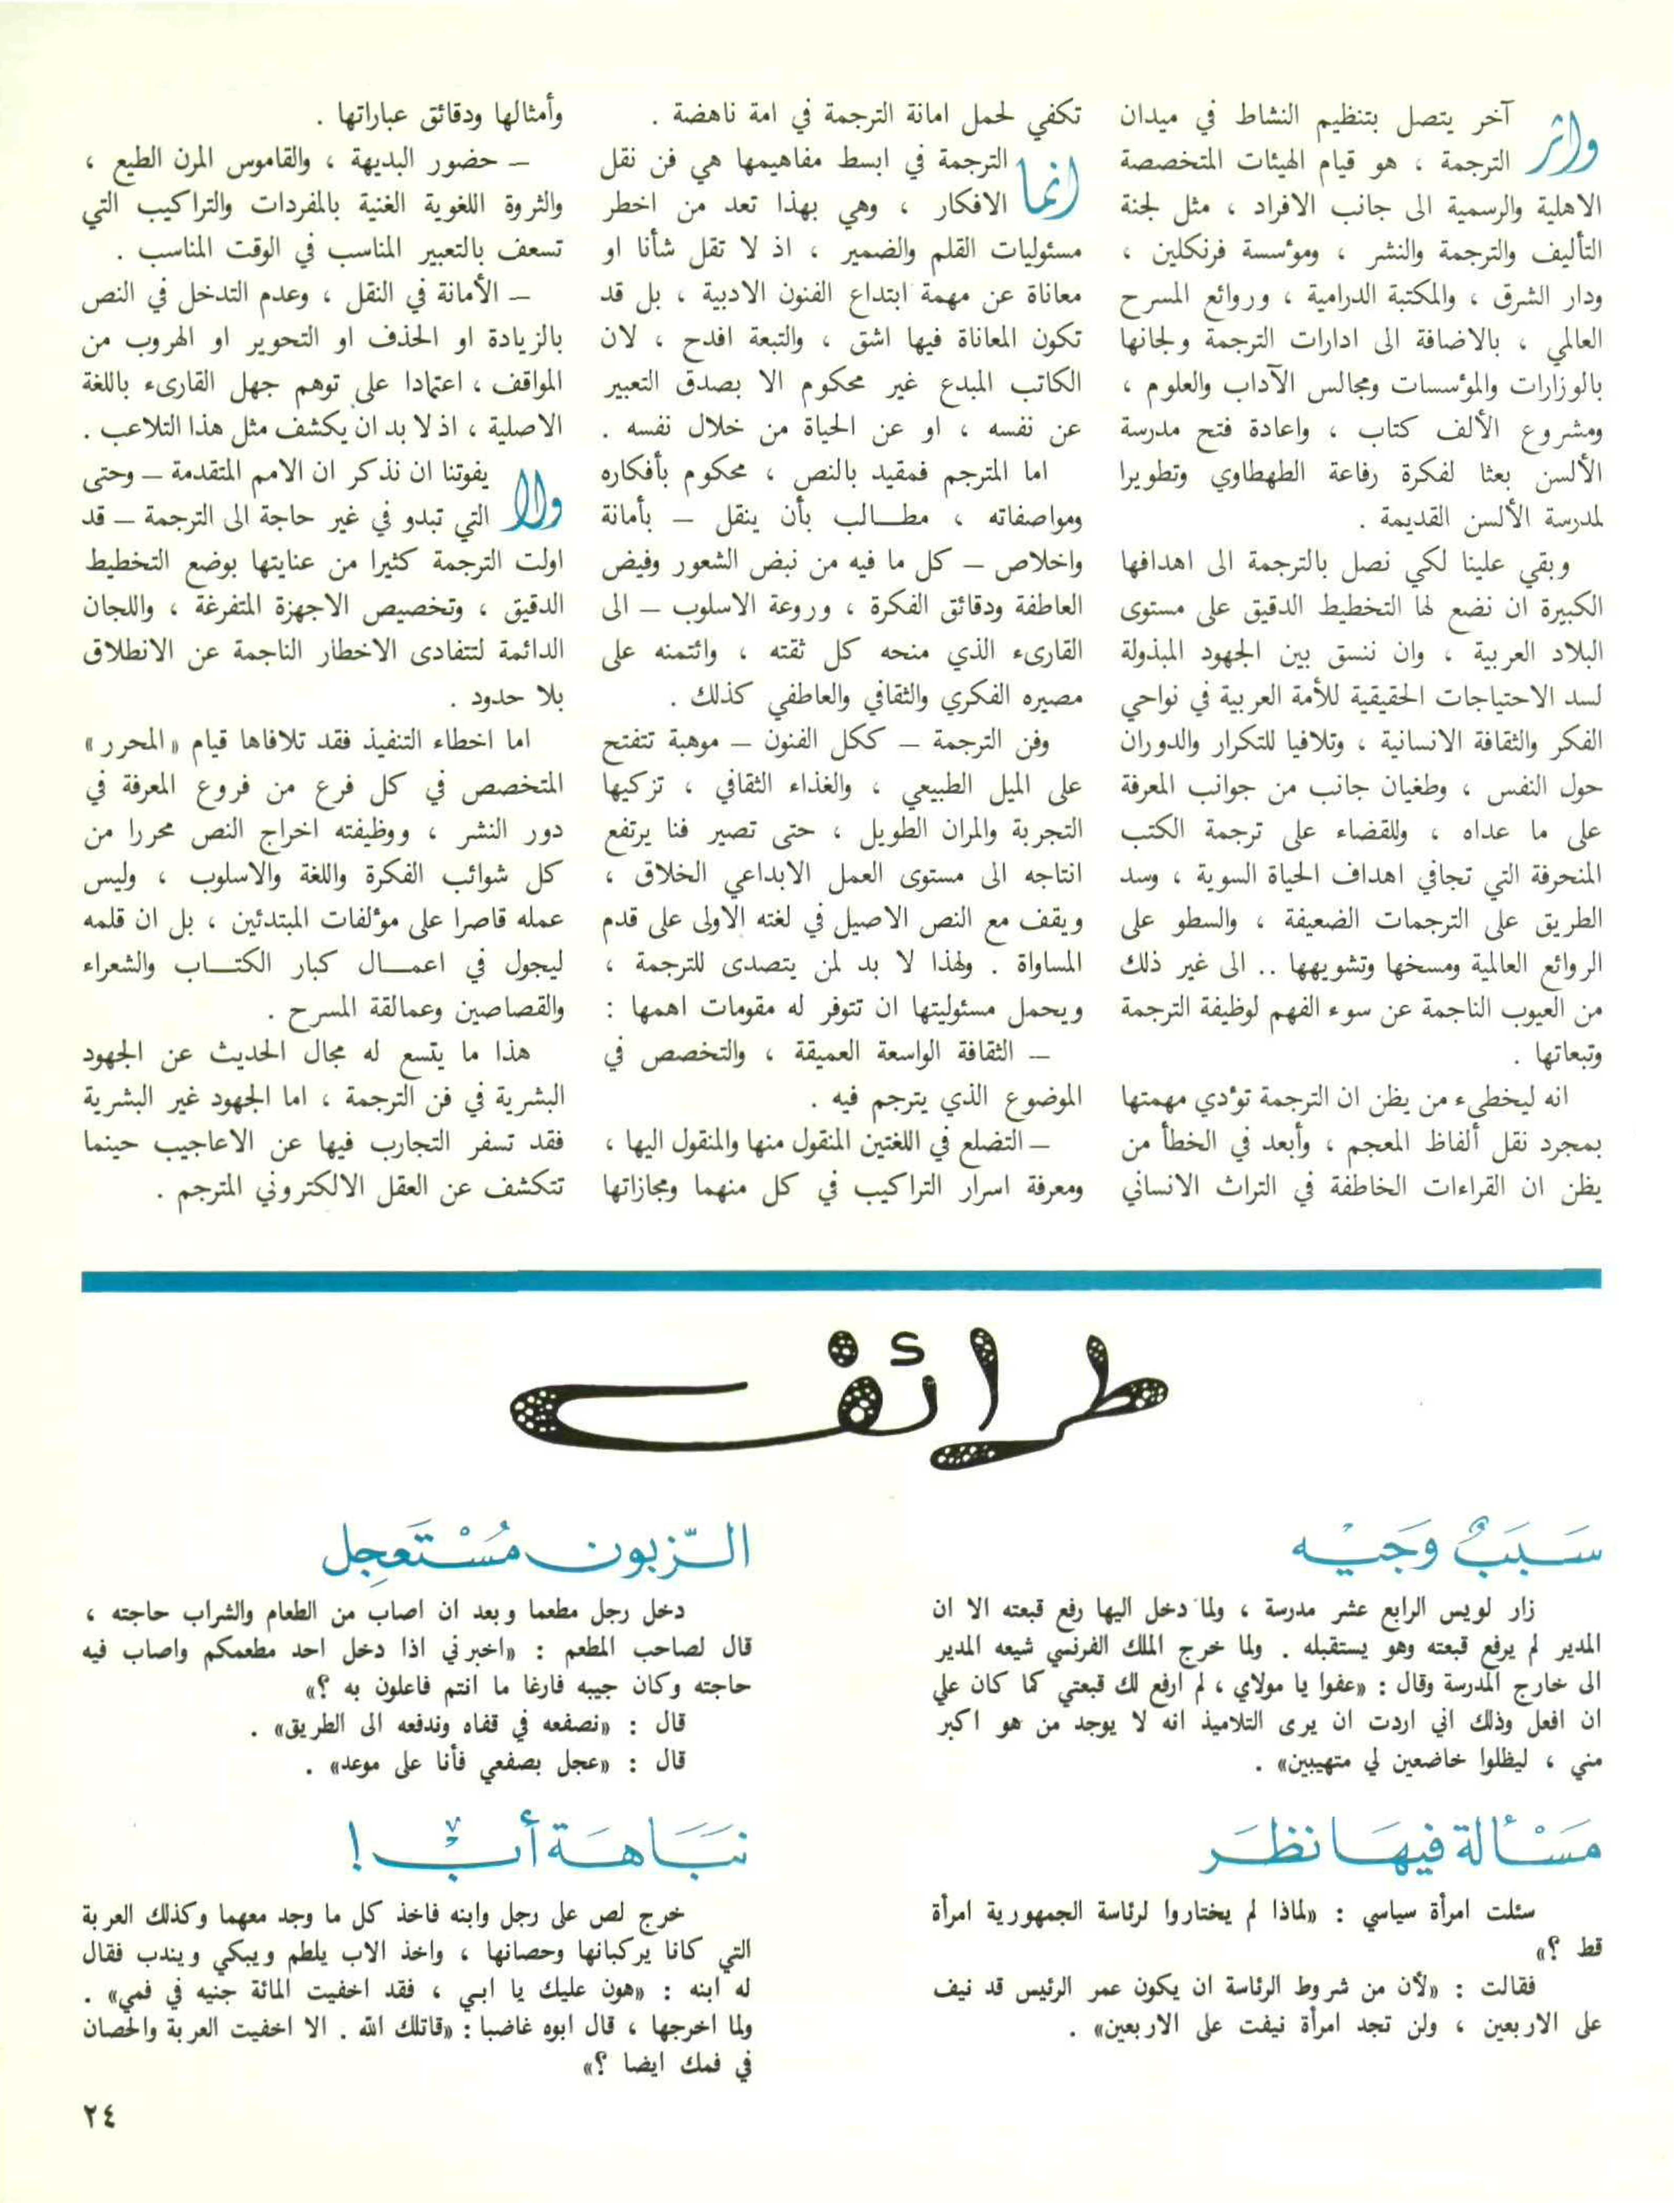 واثر آخر يتصل بتنظيم النشاط في ميدان
الترجمة ، هو قيام الهيئات المتخصصة
الاهلية والرسمية الى جانب الافراد ، مثل لجنة
التأليف والترجمة والنشر ، ومؤسسة فرنكلين ،
ودار الشرق ، والمكتبة الدرامية ، وروائع المسرح
العالمي ، بالاضافة الى ادارات الترجمة ولجانها
بالوزارات والمؤسسات ومجالس الآداب والعلوم ،
ومشروع الألف كتاب ، واعادة فتح مدرسة
الألسن بعثا لفكرة رفاعة الطهطاوي وتطويرا
لمدرسة الألسن القديمة .
وبقي علينا لكي نصل بالترجمة الى اهدافها
الكبيرة ان نضع لها التخطيط الدقيق على مستوى
البلاد العربية ، وان ننسق بين الجهود المبذولة
لسد الاحتياجات الحقيقية للأمة العربية في نواحي
الفكر والثقافة الانسانية ، وتلافيا للتكرار والدوران
حول النفس ، وطغيان جانب من جوانب المعرفة
على ما عداه ، وللقضاء على ترجمة الكتب
المنحرفة التي تجافي اهداف الحياة السوية ، وسد
الطريق على الترجمات الضعيفة ، والسطو على
الروائع العالمية ومسخها وتشويهها .. الى غير ذلك
من العيوب الناجمة عن سوء الفهم لوظيفة الترجمة
وتبعاتها .
انه ليخطىء من يظن ان الترجمة تؤدي مهمتها
بمجرد نقل ألفاظ المعجم ، وأبعد في الخطأ من
يظن ان القراءات الخاطفة في التراث الانساني
تكفي لحمل امانة الترجمة في امة ناهضة .
انما الترجمة في ابسط مفاهيمها هي فن نقل
الافكار ، وهي بهذا تعد من اخطر
مسئوليات القلم والضمير ، اذ لا تقل شأنا او
معاناة عن مهمة ابتداع الفنون الادبية ، بل قد
تكون المعاناة فيها اشق ، والتبعة افدح ، لان
الكاتب المبدع غير محكوم الا بصدق التعبير
عن نفسه ، او عن الحياة من خلال نفسه .
اما المترجم فمقيد بالنص ، محكوم بأفكاره
ومواصفاته ، مطـالب بأن ينقل – بأمانة
واخلاص – كل ما فيه من نبض الشعور وفيض
العاطفة ودقائق الفكرة ، وروعة الاسلوب – الى
القارىء الذي منحه كل ثقته ، وائتمنه على
مصيره الفكري والثقافي والعاطفي كذلك .
وفن الترجمة – ككل الفنون – موهبة تتفتح
على الميل الطبيعي ، والغذاء الثقافي ، تزكيها
التجربة والمران الطويل ، حتى تصير فنا يرتفع
انتاجه الى مستوى العمل الابداعي الخلاق ،
ويقف مع النص الاصيل في لغته الاولى على قدم
المساواة . ولهذا لا بد لمن يتصدى للترجمة ،
ويحمل مسئوليتها ان تتوفر له مقومات اهمها :
– الثقافة الواسعة العميقة ، والتخصص في
الموضوع الذي يترجم فيه .
– التضلع في اللغتين المنقول منها والمنقول اليها ،
ومعرفة اسرار التراكيب في كل منهما ومجازاتها
وأمثالها ودقائق عباراتها .
– حضور البديهة ، والقاموس المرن الطيع ،
والثروة اللغوية الغنية بالمفردات والتراكيب التي
تسعف بالتعبير المناسب في الوقت المناسب .
– الأمانة في النقل ، وعدم التدخل في النص
بالزيادة او الحذف او التحوير او الهروب من
المواقف ، اعتمادا على توهم جهل القارىء باللغة
الاصلية ، اذ لا بد ان يكشف مثل هذا التلاعب .
ولا يفوتنا ان نذكر ان الامم المتقدمة – وحتى
التي تبدو في غير حاجة الى الترجمة – قد
اولت الترجمة كثيرا من عنايتها بوضع التخطيط
الدقيق ، وتخصيص الاجهزة المتفرغة ، واللجان
الدائمة لتتفادى الاخطار الناجمة عن الانطلاق
بلا حدود .
اما اخطاء التنفيذ فقد تلافاها قيام «المحرر»
المتخصص في كل فرع من فروع المعرفة في
دور النشر ، ووظيفته اخراج النص محررا من
كل شوائب الفكرة واللغة والاسلوب ، وليس
عمله قاصرا على مؤلفات المبتدئين ، بل ان قلمه
ليجول في اعمـال كبار الكتـاب والشعراء
والقصاصين وعمالقة المسرح .
هذا ما يتسع له مجال الحديث عن الجهود
البشرية في فن الترجمة ، اما الجهود غير البشرية
فقد تسفر التجارب فيها عن الاعاجيب حينما
تتكشف عن العقل الالكتروني المترجم .
طرائف
سَبَبٌ وَجيْه
زار لويس الرابع عشر مدرسة ، ولما دخل اليها رفع قبعته الا ان
المدير لم يرفع قبعته وهو يستقبله . ولما خرج الملك الفرنسي شيعه المدير
الى خارج المدرسة وقال : «عفوا يا مولاي ، لم ارفع لك قبعتي كما كان علي
ان افعل وذلك اني اردت ان يرى التلاميذ انه لا يوجد من هو اكبر
مني ، ليظلوا خاضعين لي متهيبين» .
مَسْألة فيهَا نظَر
سئلت امرأة سياسي : «لماذا لم يختاروا لرئاسة الجمهورية امرأة
قط ؟»
فقالت : «لأن من شروط الرئاسة ان يكون عمر الرئيس قد نيف
على الاربعين ، ولن تجد امرأة نيفت على الاربعين» .
الزّبون مُسْتَعجِل
دخل رجل مطعما وبعد ان اصاب من الطعام والشراب حاجته ،
قال لصاحب المطعم : «اخبرني اذا دخل احد مطعمكم واصاب فيه
حاجته وكان جيبه فارغا ما انتم فاعلون به ؟»
قال : «نصفعه في قفاه وندفعه الى الطريق» .
قال : «عجل بصفعي فأنا على موعد» .
نبَاهَة أبٍ !
خرج لص على رجل وابنه فاخذ كل ما وجد معهما وكذلك العربة
التي كانا يركبانها وحصانها ، واخذ الاب يلطم ويبكي ويندب فقال
له ابنه : «هون عليك يا ابـي ، فقد اخفيت المائة جنيه في فمي» .
ولما اخرجها ، قال ابوه غاضبا : «قاتلك الله . الا اخفيت العربة والحصان
في فمك ايضا ؟»
٢٤